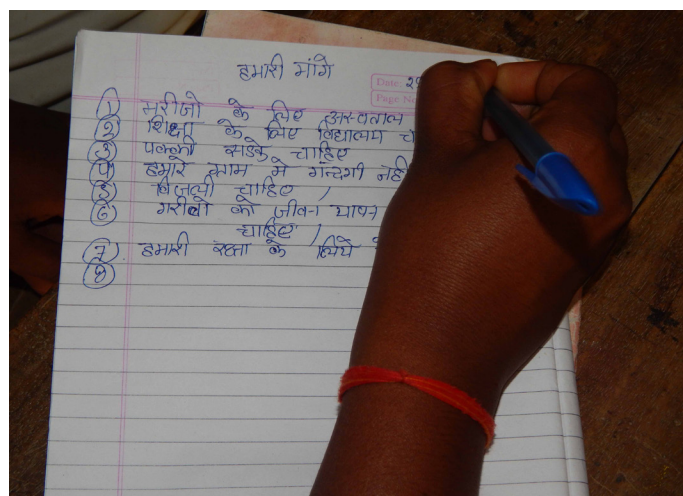 हमारी मांगे
Date: २५
Page No
① मरीजो के लिए अस्पताल
② शिक्षा के लिए विद्यालय च
③ पक्की सडके चाहिए
④ हमारे ग्राम मे गन्दगी नही
⑤ बिजली चाहिए /
⑥ गरीबो को जीवन यापन
चाहिए /
⑦ हमारी रक्षा के लिये
⑧